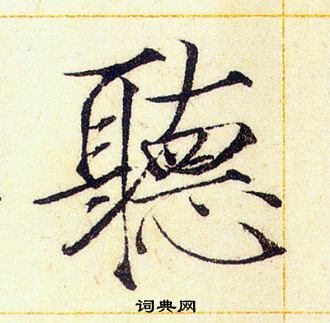 聽
词典网